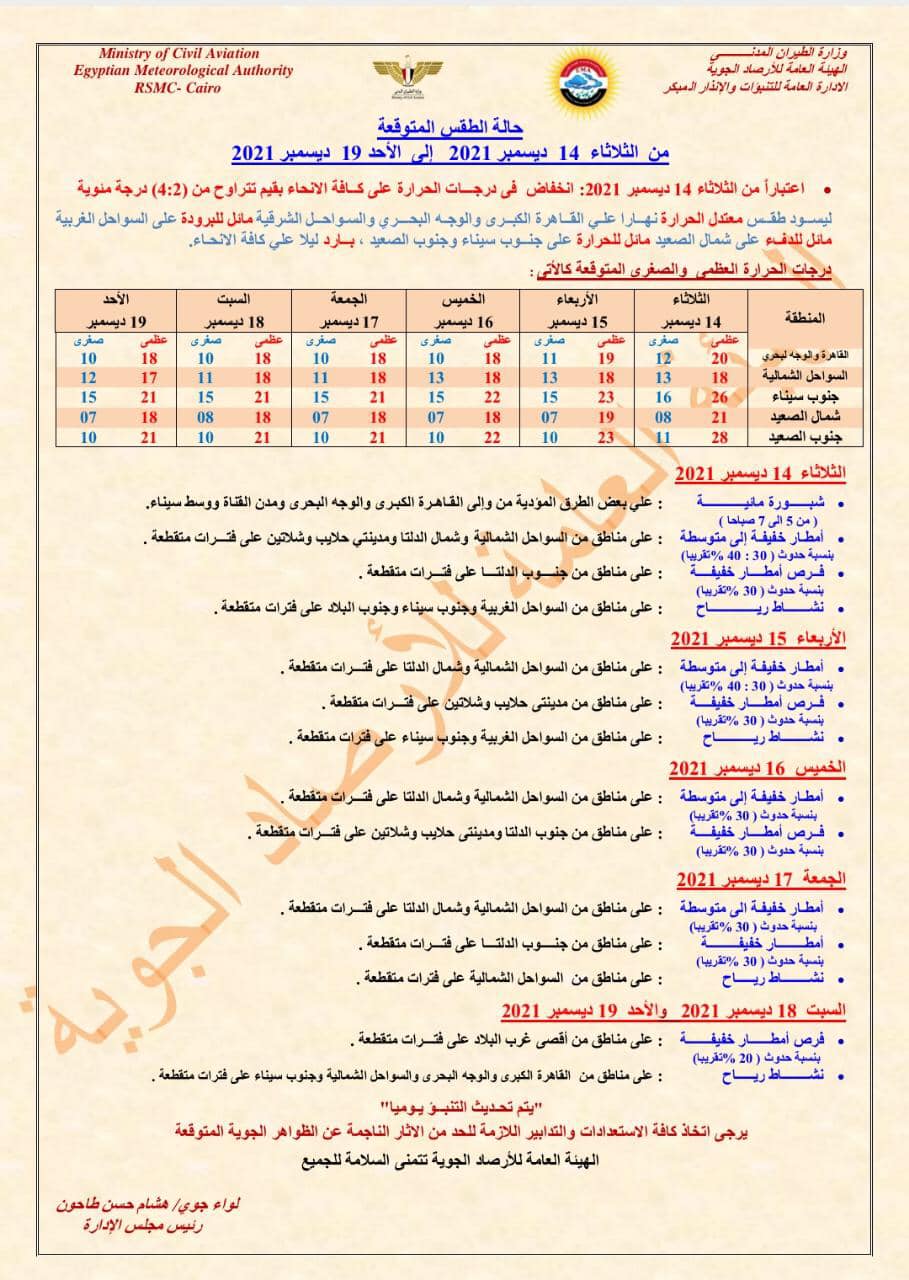 Ministry of Civil Aviation
Egyptian Meteorological Authority
RSMC- Cairo
وزارة الطيران المدنـــــي
الهيئة العامة للأرصاد الجوية
الادارة العامة للتنبؤات والإنذار المبكر
حالة الطقس المتوقعة
من الثلاثاء 14 ديسمبر 2021 إلى الأحد 19 ديسمبر 2021
• اعتباراً من الثلاثاء 14 ديسمبر 2021: انخفاض فى درجـات الحرارة على كافة الانحاء بقيم تتراوح من (4:2) درجة مئوية
ليسود طقس معتدل الحرارة نهارا علي القاهرة الكبرى والوجه البحري والسواحل الشرقية مائل للبرودة على السواحل الغربية
مائل للدفء على شمال الصعيد مائل للحرارة على جنوب سيناء وجنوب الصعيد ، بـارد ليلا علي كافة الانحاء.
درجات الحرارة العظمى والصغرى المتوقعة كالأتى :
المنطقة الثلاثاء الأربعاء الخميس الجمعة السبت الأحد
14 ديسمبر 15 ديسمبر 16 ديسمبر 17 ديسمبر 18 ديسمبر 19 ديسمبر
عظمى صغرى عظمى صغرى عظمى صغرى عظمى صغرى عظمى صغرى عظمى صغرى
القاهرة والوجه لبحري 20 12 19 11 18 10 18 10 18 10 18 10
السواحل الشمالية 18 13 18 13 18 13 18 11 18 11 17 12
جنوب سيناء 26 16 23 15 22 15 21 15 21 15 21 15
شمال الصعيد 21 08 19 07 18 07 18 07 18 08 18 07
جنوب الصعيد 28 11 23 10 22 10 21 10 21 10 21 10
الثلاثاء 14 ديسمبر 2021
• شبـــورة مائيـــــة : علي بعض الطرق المؤدية من وإلى القاهرة الكبرى والوجه البحرى ومدن القناة ووسط سيناء.
( من 5 الى 7 صباحا )
• أمطـار خفيفة إلى متوسطة : على مناطق من السواحل الشمالية وشمال الدلتا ومدينتي حلايب وشلاتين على فتـرات متقطعة .
بنسبة حدوث ( 30 : 40 %تقريبا)
• فـرص أمطـــار خفيفـــة : على مناطق من جنـــوب الدلتـــا على فتـرات متقطعة .
بنسبة حدوث ( 30 %تقريبا)
• نشـــــاط ريـــــــاح : على مناطق من السواحل الغربية وجنوب سيناء وجنوب البلاد على فترات متقطعة .
الأربعاء 15 ديسمبر 2021
• أمطـار خفيفة إلى متوسطة : على مناطق من السواحل الشمالية وشمال الدلتا على فتـرات متقطعة .
بنسبة حدوث ( 30 : 40 %تقريبا)
• فـرص أمطـــار خفيفـــة : على مناطق من مدينتى حلايب وشلاتين على فتـرات متقطعة .
بنسبة حدوث ( 30 %تقريبا)
• نشـــــاط ريـــــــاح : على مناطق من السواحل الغربية وجنوب سيناء على فترات متقطعة .
الخميس 16 ديسمبر 2021
• أمطـار خفيفة إلى متوسطة : على مناطق من السواحل الشمالية وشمال الدلتا على فتـرات متقطعة .
بنسبة حدوث ( 30 %تقريبا)
• فـرص أمطـــار خفيفـــة : على مناطق من جنوب الدلتا ومدينتى حلايب وشلاتين على فتـرات متقطعة .
بنسبة حدوث ( 30 %تقريبا)
الجمعة 17 ديسمبر 2021
• أمطـار خفيفة الى متوسطة : على مناطق من السواحل الشمالية وشمال الدلتا على فتـرات متقطعة .
بنسبة حدوث ( 30 %تقريبا)
• أمطـــــار خفيفـــــة : على مناطق من جنـــوب الدلتـــا على فتـرات متقطعة .
بنسبة حدوث ( 30 %تقريبا)
• نشـــــاط ريـــــاح : على مناطق من السواحل الشمالية على فترات متقطعة .
السبت 18 ديسمبر 2021 والأحد 19 ديسمبر 2021
• فرص أمطـــــار خفيفـــــة : على مناطق من أقصى غرب البلاد على فتـرات متقطعة .
بنسبة حدوث ( 20 %تقريبا)
• نشـــــاط ريـــــاح : على مناطق من القاهرة الكبرى والوجه البحرى والسواحل الشمالية وجنوب سيناء على فترات متقطعة .
"يتم تحديث التنبـؤ يوميا"
يرجى اتخاذ كافة الاستعدادات والتدابير اللازمة للحد من الاثار الناجمة عن الظواهر الجوية المتوقعة
الهيئة العامة للأرصاد الجوية تتمنى السلامة للجميع
لواء جوي/ هشام حسن طاحون
رئيس مجلس الإدارة
الهيئة العامة للأرصاد الجوية